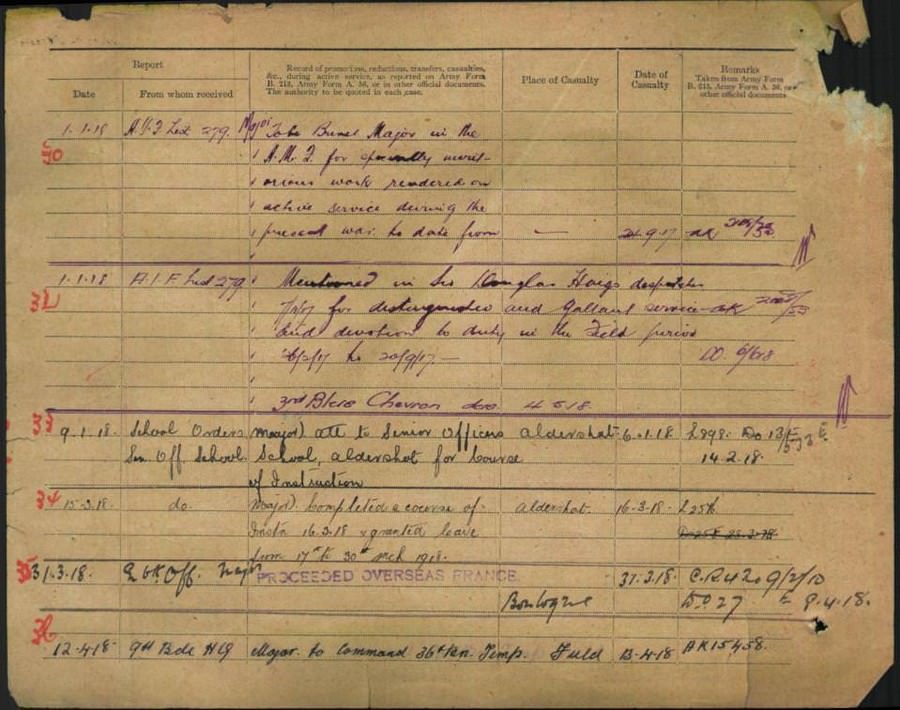 Report
Record of promotions, reductions, transfers, casualties,
&c., during active service, as reported on Army Form
B. 213, Army Form A. 36, or in other official documents.
The authority to be quoted in each case.
Place of Casualty
Date of
Casualty
Remarks
Taken from Army Form
B. 213, Army Form A. 36, or
other official documents
Date
From whom received
1.1.18 A.I.F List 279. Major To be Brevet Major in the
30
A.M.F. for specially merit-
orious work rendered on
active service during the
present war: to date from — 24.9.17 AK
1.1.18 A.I.F List 279 Mentioned in Sir Douglas Haigs despatches
32
7/11/17 for distinguished and Gallant service AK
and devotion to duty in the Field period
26/2/17 to 20/9/17 — DO.
3rd Blue Chevron due 4.5.18.
33
9.1.18. School Orders Major) att to Senior Officers Aldershot 6.1.18 L898. Do 13/E
Sen Off. School. School, Aldershot for Course 14.2.18.
of Instruction
34
15.3.18 do. Major). Completed a course of Aldershot. 16.3.18. L256
Instn 16.3.18 & granted leave
from 17th to 30th Mch 1918.
35
31.3.18. Off. Major PROCEEDED OVERSEAS FRANCE. 31.3.18.
Boulogne Do 27 E 9.4.18.
36
12.4.18 9th Bde HQ Major. to Command 36th Bn. Temp. Field 13.4.18 AK15458.